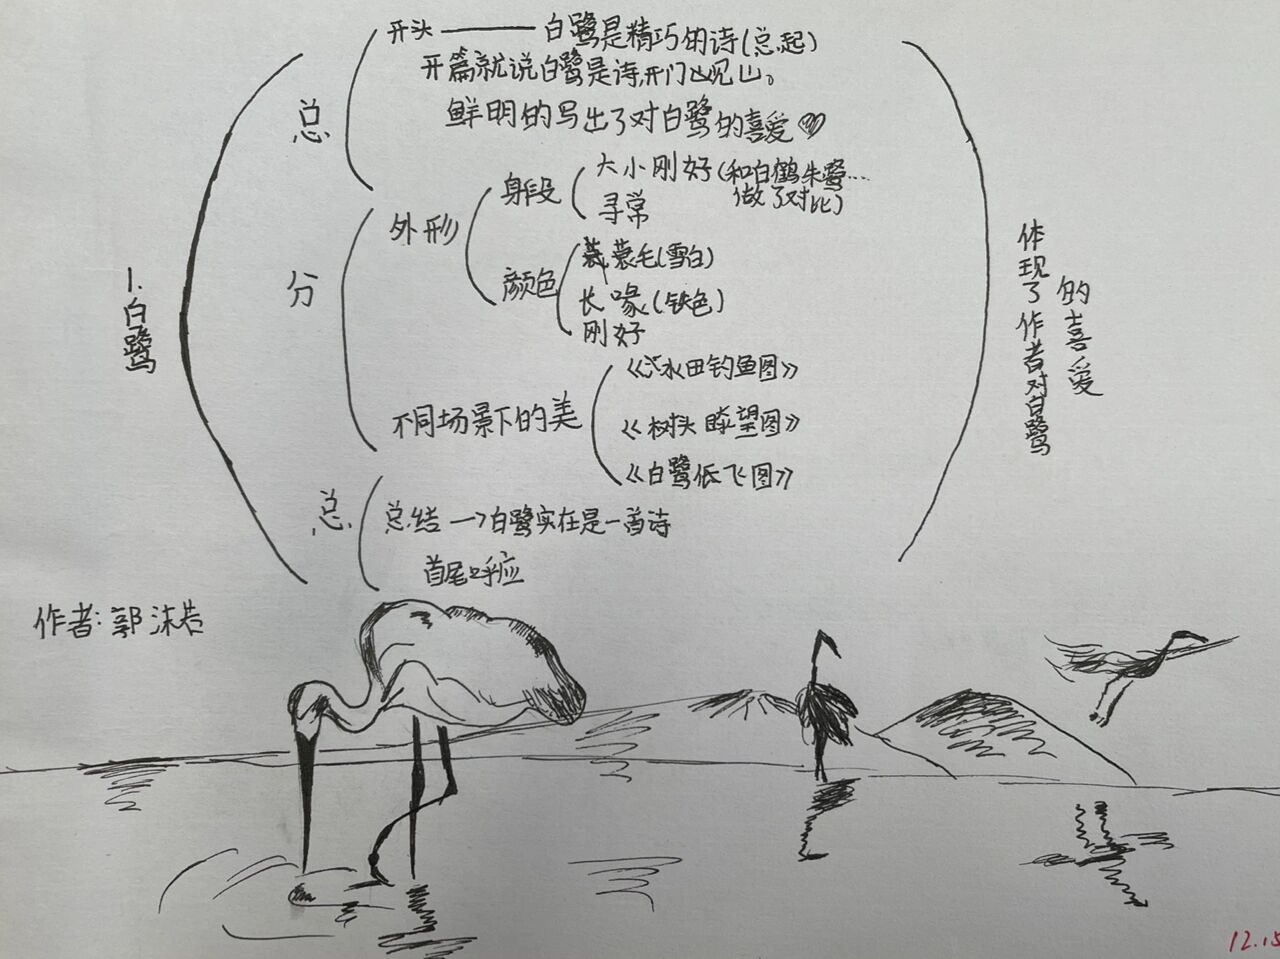 开头——白鹭是精巧的诗(总起)
开篇就说白鹭是诗,开门山见山。
总
鲜明的写出了对白鹭的喜爱
大小刚好(和白鹤朱鹭…
做了对比)
身段
寻常
外形
蓑毛(雪白)
颜色
长喙(铁色)
刚好
分
1.白鹭
《水田钓鱼图》
不同场景下的美
《树头瞭望图》
《白鹭低飞图》
总
总结→白鹭实在是一首诗
首尾呼应
体现了作者对白鹭
的喜爱
作者:郭沫若
12.15